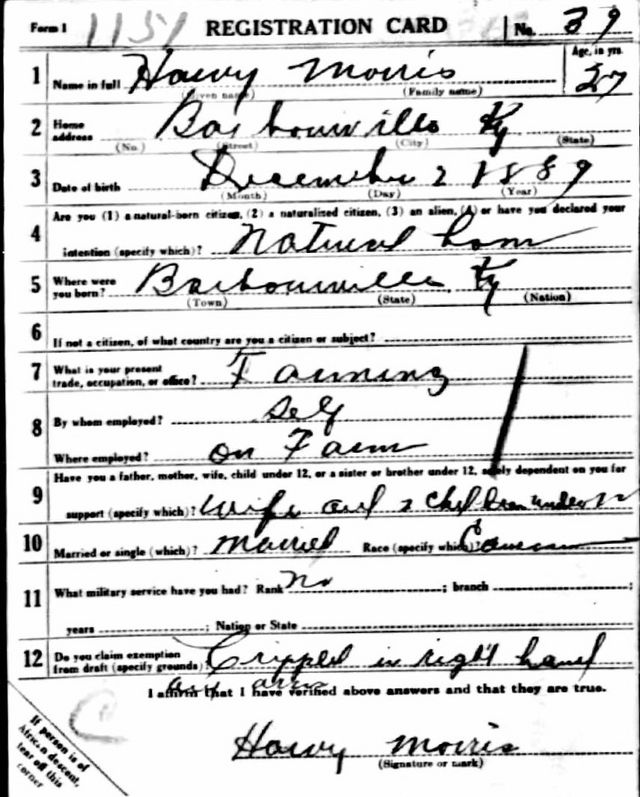 Form 1 1151 REGISTRATION CARD No. 39
1 Name in full Harvy Morris Age, in yrs. 27
(Given name) (Family name)
2 Home address Barbourville Ky
(No.) (Street) (City) (State)
3 Date of birth December 2 1889
(Month) (Day) (Year)
Are you (1) a natural-born citizen, (2) a naturalized citizen, (3) an alien, (4) or have you declared your
4 intention (specify which)? Natural born
5 Where were you born? Barbourville Ky
(Town) (State) (Nation)
6 If not a citizen, of what country are you a citizen or subject?
7 What is your present trade, occupation, or office? Farming
8 By whom employed? Self
Where employed? on Farm
Have you a father, mother, wife, child under 12, or a sister or brother under 12, solely dependent on you for
9 support (specify which)? Wife and 2 children under 12
10 Married or single (which)? Married Race (specify which)?
11 What military service have you had? Rank No ; branch ;
years ; Nation or State
12 Do you claim exemption from draft (specify grounds)? Crippled in right hand
and arm
I affirm that I have verified above answers and that they are true.
Harvy Morris
(Signature or mark)
If person is of
African descent,
tear off this
corner